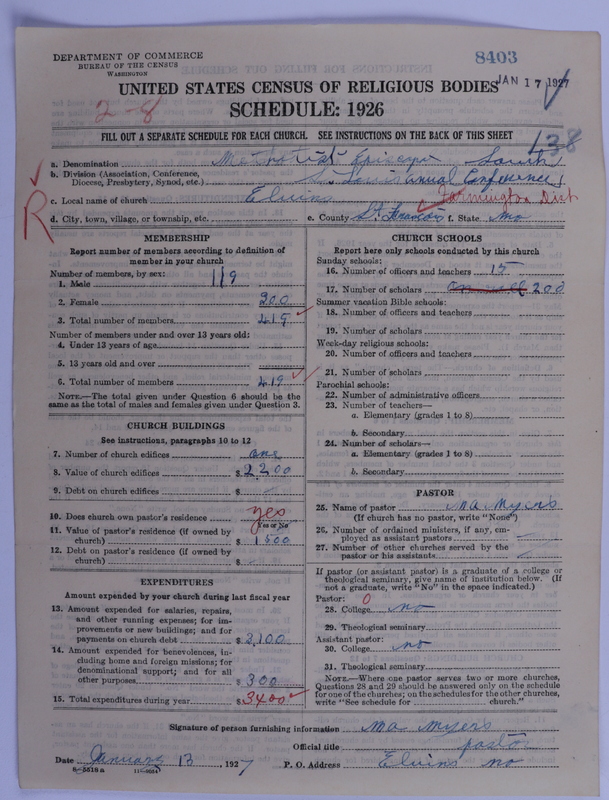 DEPARTMENT OF COMMERCE
BUREAU OF THE CENSUS
WASHINGTON
8403
JAN 17 1927
UNITED STATES CENSUS OF RELIGIOUS BODIES
2-8
SCHEDULE: 1926
FILL OUT A SEPARATE SCHEDULE FOR EACH CHURCH. SEE INSTRUCTIONS ON THE BACK OF THIS SHEET
138
a. Denomination Methodist Episcopa South
b. Division (Association, Conference, Diocese, Presbytery, Synod, etc.) St Louis anual Conference
R
c. Local name of church Elvins Farmington Dist
d. City, town, village, or township, etc. e. County St. Francois f. State Mo
MEMBERSHIP
Report number of members according to definition of member in your church
Number of members, by sex:
1. Male 119
2. Female 300
3. Total number of members 419
Number of members under and over 13 years old:
4. Under 13 years of age
5. 13 years old and over
6. Total number of members 419
NOTE.—The total given under Question 6 should be same as the total of males and females given under Question 3.
CHURCH BUILDINGS
See instructions, paragraphs 10 to 12
7. Number of church edifices one
8. Value of church edifices $ 2200
9. Debt on church edifices $
10. Does church own pastor's residence yes
Yes or No
11. Value of pastor's residence (if owned by church) $ 1500
12. Debt on pastor's residence (if owned by church) $
EXPENDITURES
Amount expended by your church during last fiscal year
13. Amount expended for salaries, repairs, and other running expenses; for improvements or new buildings; and for payments on church debt $ 2,100
14. Amount expended for benevolences, including home and foreign missions; for denominational support; and for all other purposes $ 300
15. Total expenditures during year $ 3400
CHURCH SCHOOLS
Report here only schools conducted by this church
Sunday schools:
16. Number of officers and teachers 15
17. Number of scholars 200
Summer vacation Bible schools:
18. Number of officers and teachers
19. Number of scholars
Week-day religious schools:
20. Number of officers and teachers
21. Number of scholars
Parochial schools:
22. Number of administrative officers
23. Number of teachers—
a. Elementary (grades 1 to 8)
b. Secondary
24. Number of scholars—
a. Elementary (grades 1 to 8)
b. Secondary
PASTOR
25. Name of pastor Ma Myers
(If church has no pastor, write "None")
26. Number of ordained ministers, if any, employed as assistant pastors
27. Number of other churches served by the pastor or his assistants
If pastor (or assistant pastor) is a graduate of a college or theological seminary, give name of institution below. (If not a graduate, write "No" in the space indicated.)
Pastor: 0
28. College no
29. Theological seminary
Assistant pastor:
30. College no
31. Theological seminary
NOTE.—Where one pastor serves two or more churches, Questions 28 and 29 should be answered only on the schedule for one of the churches; on the schedules for the other churches, write "See schedule for church."
Signature of person furnishing information Ma Myers
Official title pastor
Date January 13, 1927 P. O. Address Elvins mo
8—5518 a 11—9054